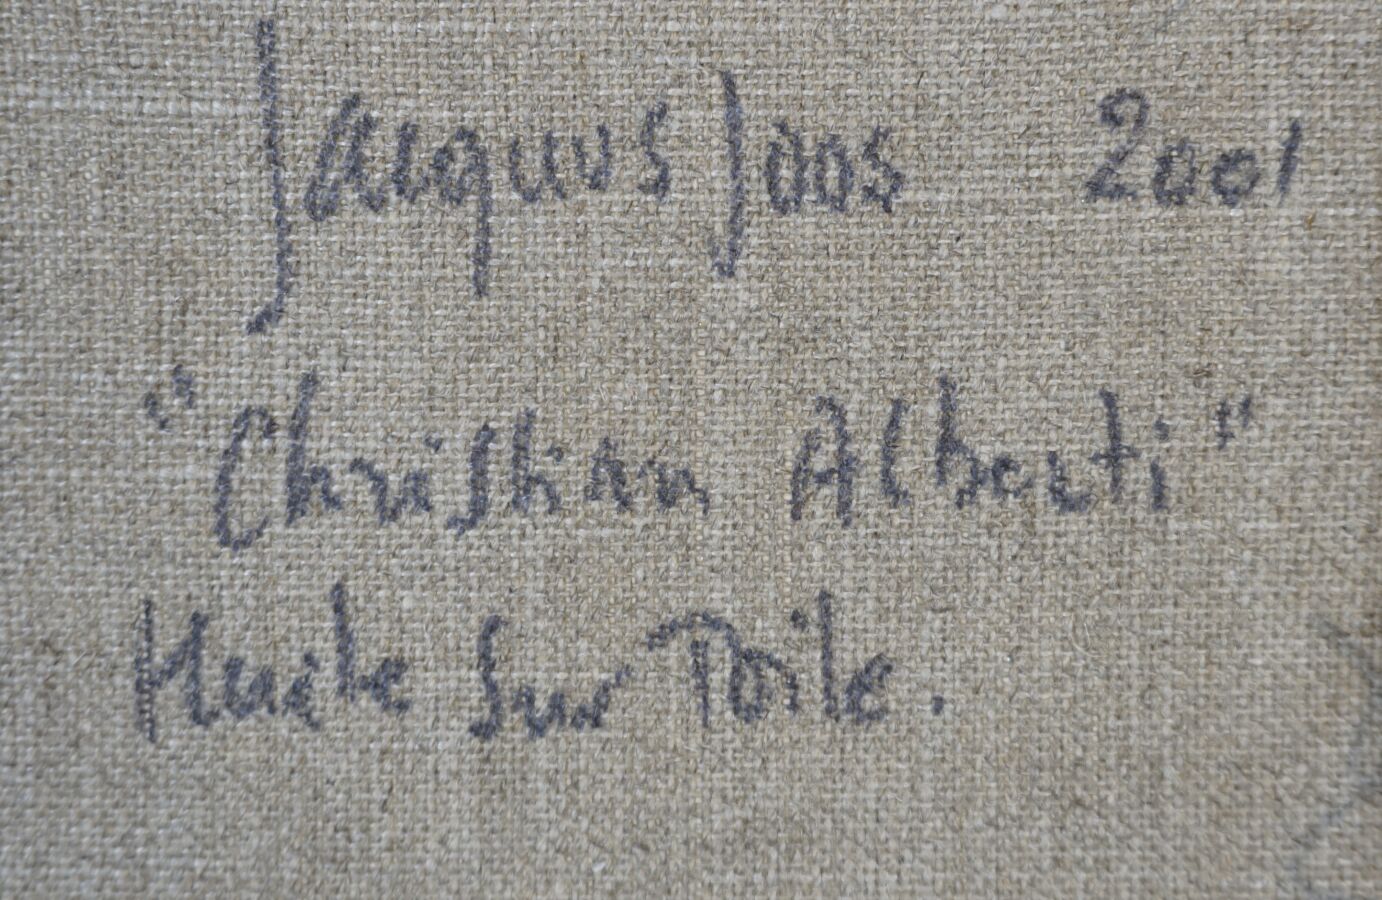 Jacques Joos 2001
"Christian Alberti"
Huile sur Toile.